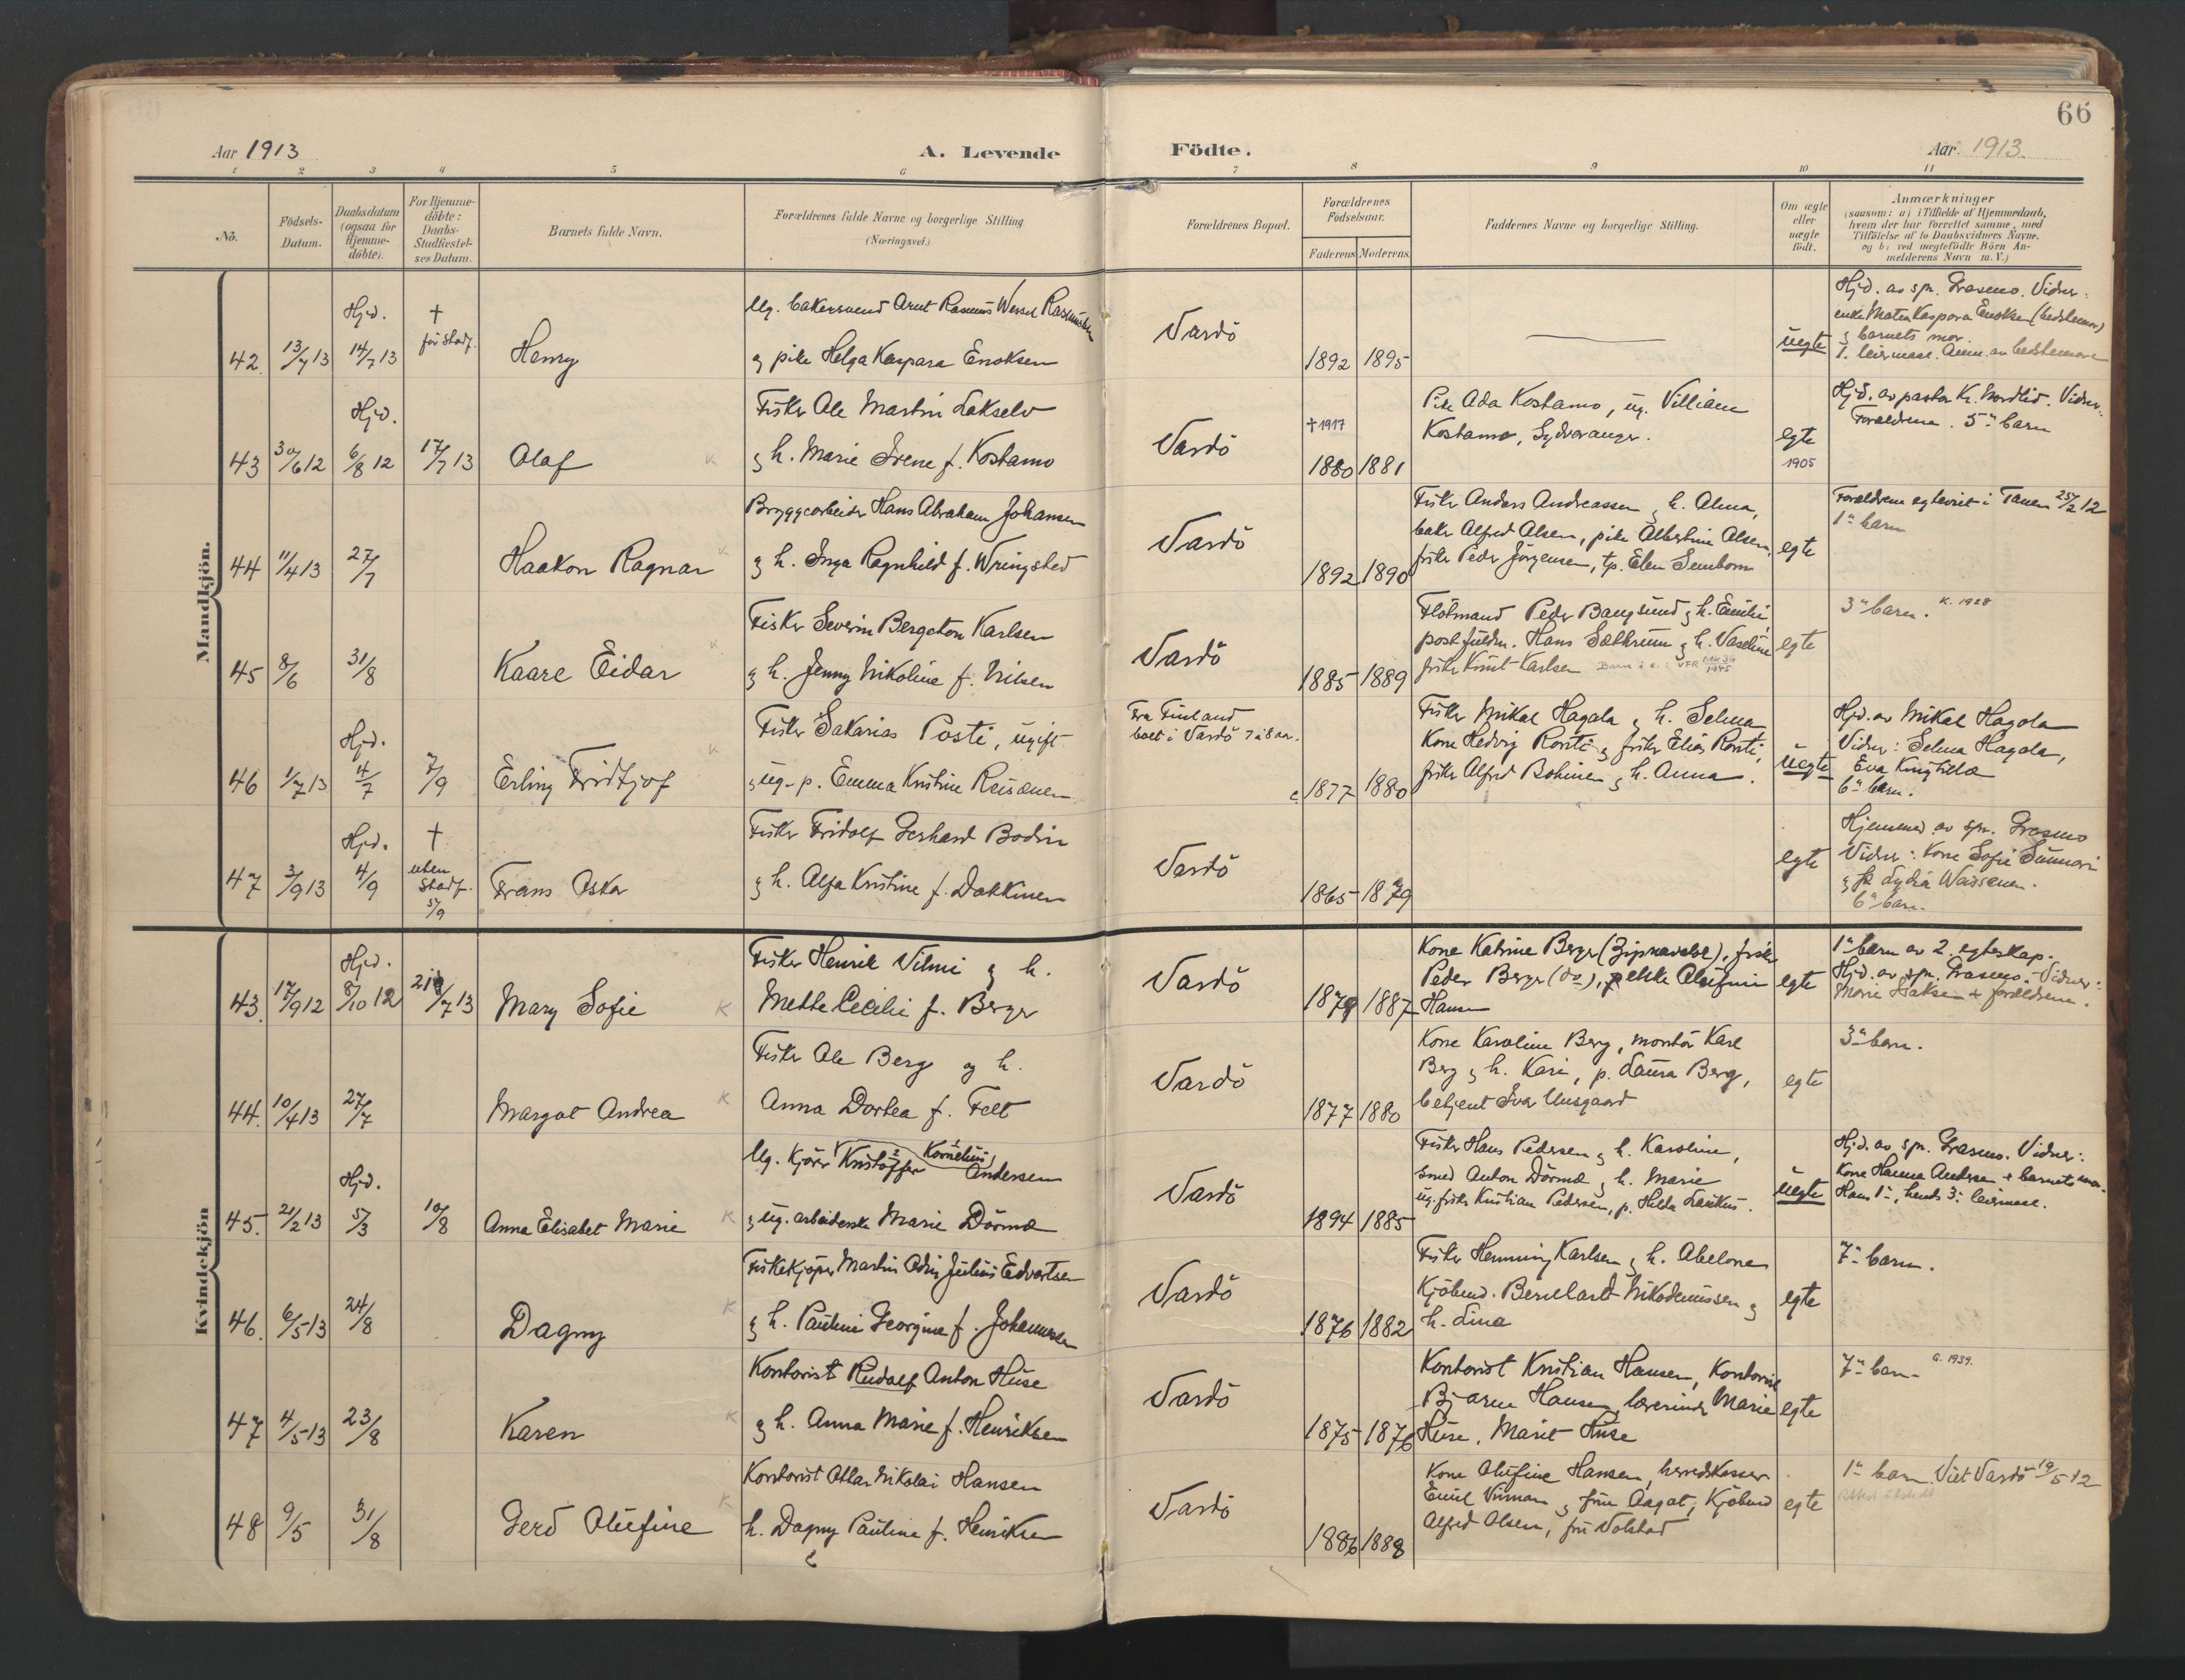 66
Aar 1913
A. Levende
Födte.
Aar 1913.
1 2 3 4 5 6 7 8 9 10 11
No.
Födsels-
Datum.
Daabsdatum
(ogsaa for
Hjemme-
döbte).
For Hjemme-
döbte:
Daabs-
Stadfæstel-
ses Datum.
Barnets fulde Navn.
Forældrenes fulde Navne og borgerlige Stilling
(Næringsvei.)
Forældrenes Bopæl.
Forældrenes
Födselsaar.
Faderens Moderens.
Faddernes Navne og borgerlige Stilling.
Om ægte
eller
uægte
födt.
Anmærkninger
(saasom: a) i Tilfælde af Hjemmedaab,
hvem der har forrettet samme, med
Tilföielse af to Daabsvidners Navne.
og b) ved uægtefödte Börn An-
melderens Navn m. V.)
Mandkjön.
42. 13/7 13
Hjd.
14/7 13
†
før Stadf.
Henry
Ug. bakersvend Arnt Rasmus Wessel Rasmussen
og pike Helga Kaspara Enoksen
Vardö
1892 1895
uegte
Hjd. av spr. Grasmo. Vidner:
enke Maten Kaspara Enoksen (bedstemor)
g barnets mor.
1. leiermaal. Anm. av bedstemor
43 30/6 12
Hjd.
6/8 12
17/7 13
Olaf
K
Fisker Ole Martin Lakselv
g h. Marie Irene f. Kostamo
Vardö
† 1917
1880 1881
Pike Ada Kostamo, ug. Villiam
Kostamo, Sydvaranger.
egte
1905
Hjd. av pastor Kr. Nordlid. Vidner:
Forældrene. 5te barn
44 11/4 13
27/7
Haakon Ragnar
K
Bryggearbeider Hans Abraham Johansen
g h. Inga Ragnhild f. Wringsted
Vardö
1892 1890
Fisker Anders Andreassen g h. Alma,
baker Alfred Olsen, pike Albertine Olsen,
fisker Peder Jörgensen, tp. Elen Semborn
egte
Forældrene egteviet i Tanen 25/2 12
1ste barn
45 8/6
31/8
Kaare Eidar
K
Fisker Severin Bergeton Karlsen
g h. Jenny Nikoline f. Nilsen
Vardö
1885 1889
Flötmand Peder Bangsund g h. Emilie,
postfuldm. Hans Sathrum g h. Vaseline
fisker Knut Karlsen
egte
3die barn. K. 1928
46 1/7 13
Hjd.
4/7
7/9
Erling Fridtjof
K
Fisker Sakarias Posti, ugift
g ug. p. Emma Kristine Reisænen
Fra Finland
boet i Vardö 7 à 8 aar.
c. 1877 1880
Fisker Mikal Hagala g h. Selma
Kone Hedvig Ronti g fisker Elias Ronti,
fisker Alfred Bohinen g h. Anna.
uegte
Hjd. av Mikal Hagola
Vidner: Selma Hagala,
Eva
6te barn.
47 3/9 13
Hjd.
4/9
†
uten
Stadf.
5/9
Frans Oskar
Fisker Fridolf Gerhard Bodin
g h. Alfa Kristine f. Dakkinen
Vardö
1865 1879
egte
Hjemmed. av spr. Grasmo
Vidner: Kone Sofie Sunnari
g fr. Lydia Waisenen.
6te barn.
Kvindekjön
43. 17/9 12
Hjd.
8/10 12
21/7 13
Mary Sofie
K
Fisker Henrik Vilmi g h.
Mette Cecilie f. Berger
Vardö
1879 1887
Kone Katrine Berger (Zipnavolok), fisker
Peder Berger (do), pike Olufine
Hansen
egte
1ste barn av 2. egteskap.
Hjd. av spr. Grasmo. Vidner:
Marie Isaksen + forældrene.
44. 10/4 13
27/7
Margot Andrea
K
Fisker Ole Berg og h.
Anna Dortea f. Felt
Vardö
1877 1880
Kone Karoline Berg, montör Karl
Berg g h. Kari, p. Laura Berg,
betjent Ivar Unsgaard
egte
3die barn.
45. 21/2 13
Hjd.
5/3
10/8
Anna Elisabet Marie
K
Ug. kjörer Kristoffer Kornelius Andersen
g ug. arbeiderske Marie Dörmæ
Vardö
1894 1885
Fisker Hans Pedersen g h. Karoline,
smed Anton Dörmæ g h. Marie
ug. fisker Kristian Pedersen, p. Helda Laukus.
uegte
Hjd. av spr. Grasmo. Vidner:
Kone Hanna Andersen + barnets mor.
Hans 1ste, hends 3die leiermaal.
46. 6/5 13
24/8
Dagny
K
Fiskekjöper Martin Odin Julius Edvartsen
g h. Pauline Georgine f. Johannesen
Vardö
1876 1882
Fisker Henning Karlsen g h. Abelone
Kjöbmd. Bernhard Nikodemussen g
h. Lina
egte
7de barn.
47 4/5 13
23/8
Karen
K
Kontorist Rudolf Anton Huse
g h. Anna Marie f. Henriksen
Vardö
1875 1876
Kontorist Kristian Hansen, Kontorist
Bjarne Hansen, lærerinde Marie
Huse, Marit Huse
egte
7de barn. G. 1939.
48 9/5
31/8
Gerd Olufine
K
Kontorist Ottar Nikolai Hansen
h. Dagny Pauline f. Henriksen
Vardö
1886 1888
Kone Olufine Hansen, herredskasser
Emil Virman g frue Aagot, Kjöbmd
Alfred Olsen, fru Volstad
egte
1ste barn. Viet Vardö 19/5 12